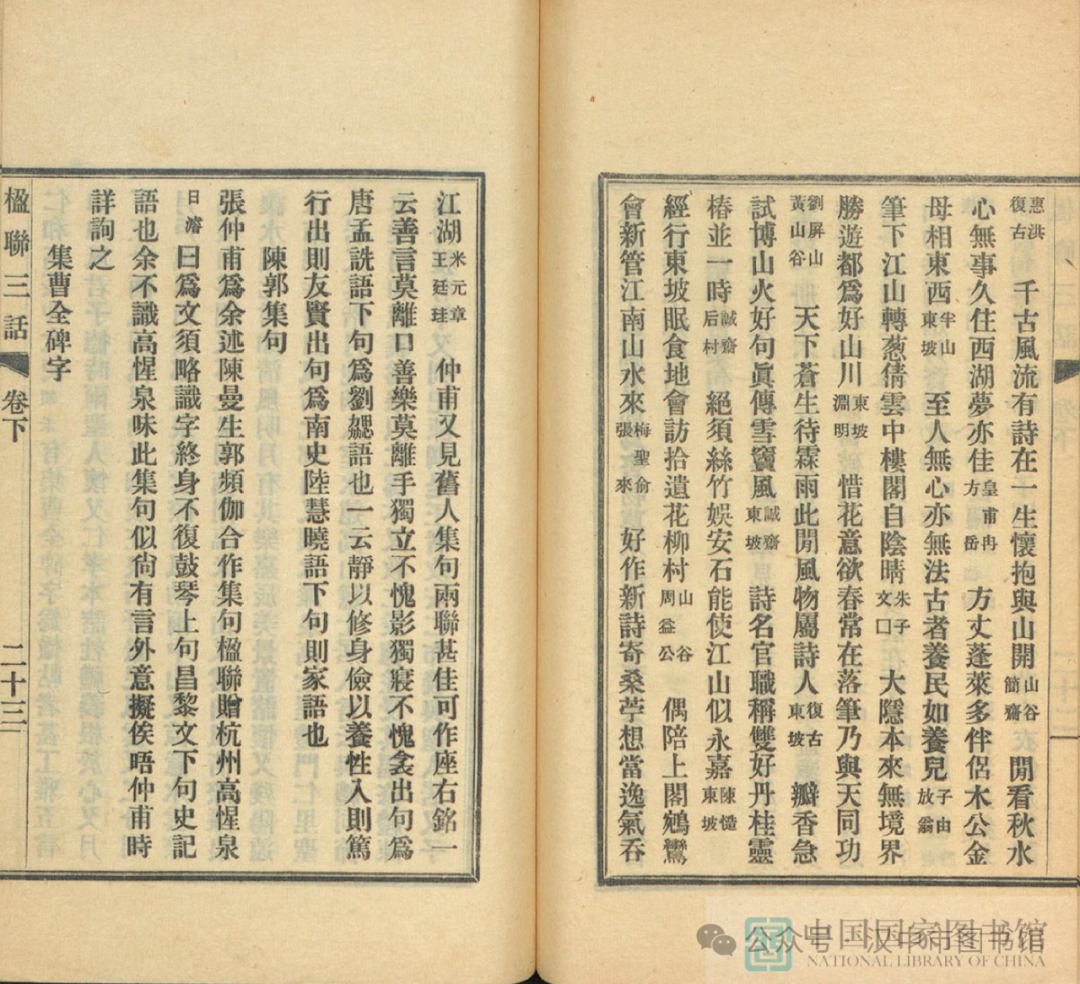 惠洪復古　千古風流有詩在一生懷抱與山開山谷簡齋　閒看秋水
心無事久住西湖夢亦佳皇甫冉方岳　方丈蓬萊多伴侶木公金
母相東西半山東坡　至人無心亦無法古者養民如養兒子由放翁
筆下江山轉葱倩雲中樓閣自陰晴朱子文囗　大隱本來無境界
勝遊都爲好山川東坡淵明　惜花意欲春常在落筆乃與天同功
劉屏山黃山谷　天下蒼生待霖雨此閒風物屬詩人復古東坡　瓣香急
試博山火好句眞傳雪竇風誠齋東坡　詩名官職稱雙好丹桂靈
椿並一時誠齋后村　絕須絲竹娛安石能使江山似永嘉陳慥東坡
經行東坡眠食地會訪拾遺花柳村山谷周益公　偶陪上閣鵷鸞
會新管江南山水來梅聖俞張來　好作新詩寄桑苧想當逸氣吞
江湖米元章王廷珪　仲甫又見舊人集句兩聯甚佳可作座右銘一
云善言莫離口善樂莫離手獨立不愧影獨寢不愧衾出句爲
唐孟詵語下句爲劉勰語也一云靜以修身儉以養性入則篤
行出則友賢出句爲南史陸慧曉語下句則家語也
陳郭集句
張仲甫爲余述陳曼生郭頻伽合作集句楹聯贈杭州高惺泉
日濬曰爲文須略識字終身不復鼓琴上句昌黎文下句史記
語也余不識高惺泉味此集句似尙有言外意擬俟晤仲甫時
詳詢之
集曹全碑字
楹聯三話　卷下　二十三
中国国家图书馆
NATIONAL LIBRARY OF CHINA
公众号·汉中市图书馆